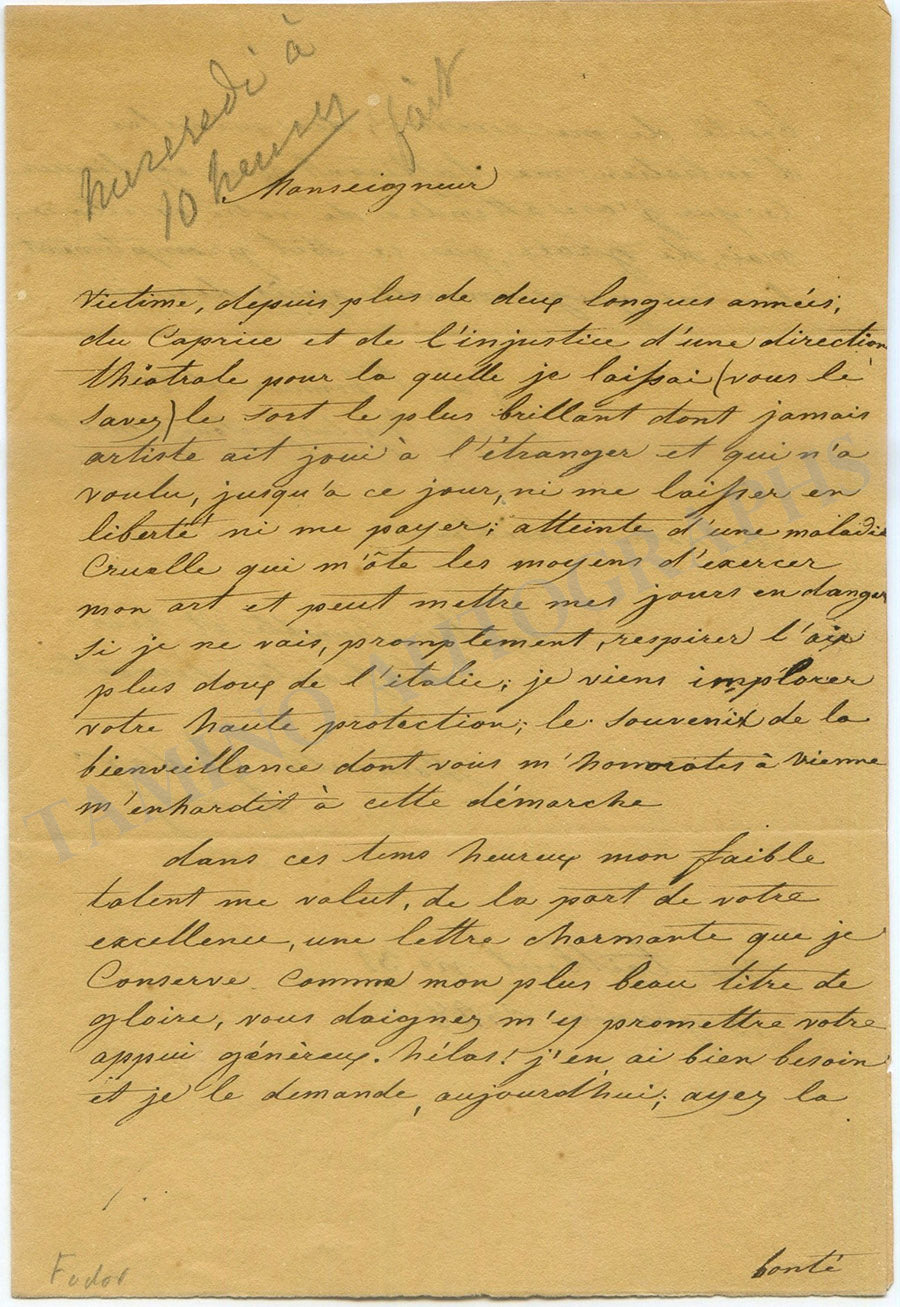 Mercredi à
10 heures
fait
Monseigneur
victime, depuis plus de deux longues années,
du Caprice et de l'injustice d'une direction
théatrale pour la quelle je laissai (vous le
savez) le sort le plus brillant dont jamais
artiste ait joui à l'étranger et qui n'a
voulu, jusqu'a ce jour, ni me laisser en
liberté ni me payer; atteinte d'une maladie
Cruelle qui m'ôte les moyens d'exercer
mon art et peut mettre mes jours en danger
si je ne vais, promptement, respirer l'air
plus doux de l'italie; je viens implorer
votre haute protection; le souvenir de la
bienveillance dont vous m'honorates à vienne
m'enhardit à cette démarche
dans ces tems heureux mon faible
talent me valut, de la part de votre
excellence, une lettre charmante que je
Conserve comme mon plus beau titre de
gloire, vous daignez m'y promettre votre
appui généreux. hélas! j'en ai bien besoin
et je le demande, aujourd'hui; ayez la
bonté
Fodor
TAMINO AUTOGRAPHS